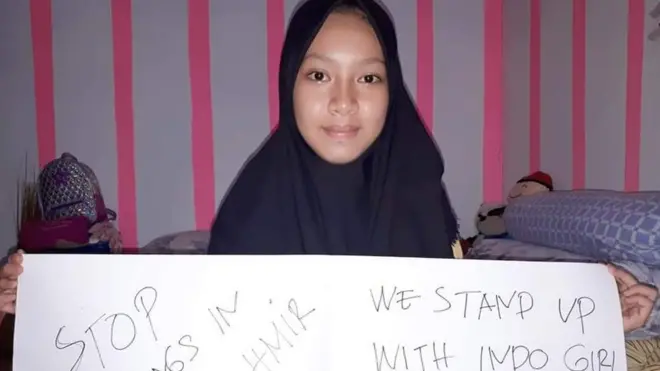 STOP
IN
WE STAND UP
WITH INDO GIRL